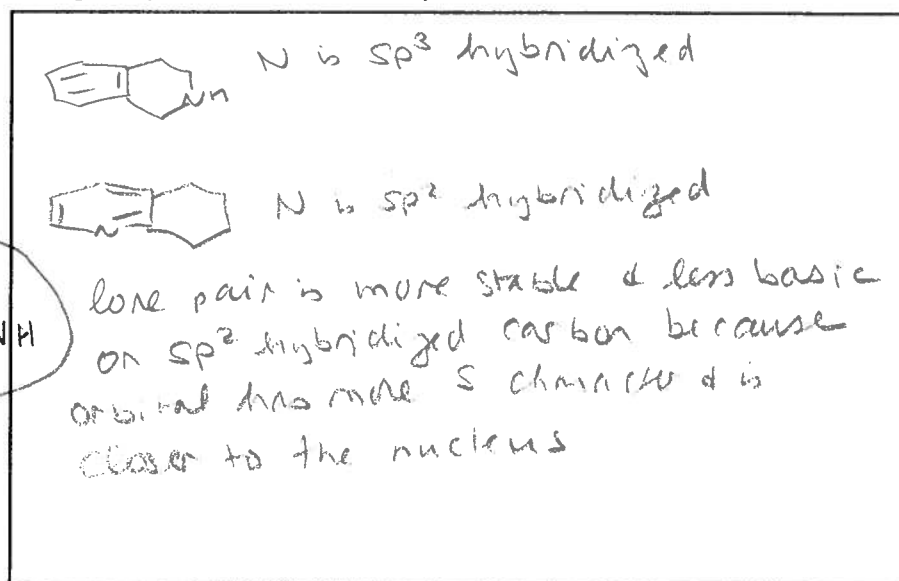 N is sp³ hybridized
NH
N is sp² hybridized
N
lone pair is more stable & less basic
NH
on sp² hybridized carbon because
orbital has more S character & is
closer to the nucleus